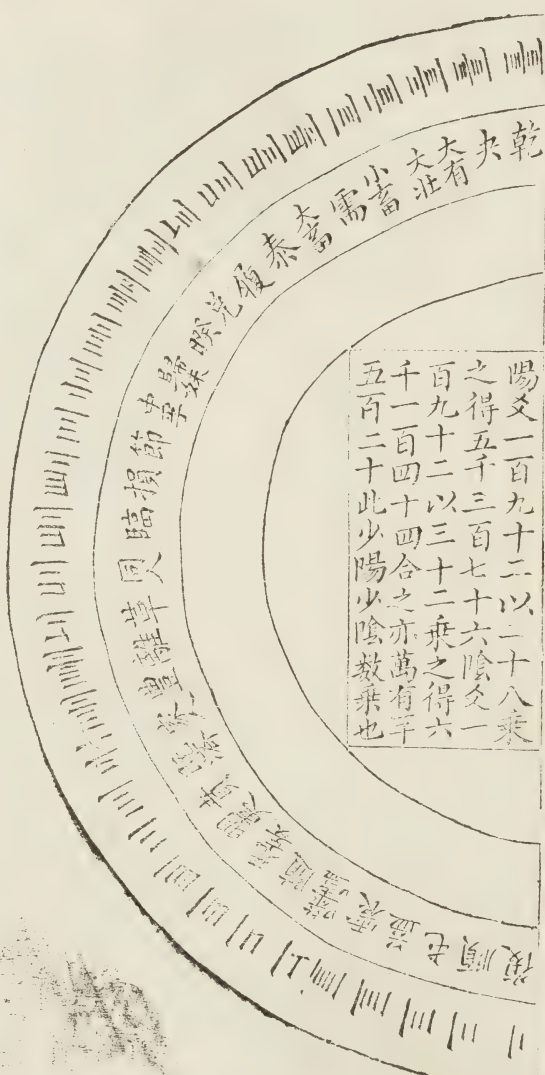 乾
夬
大有
大壯
小畜
需
大畜
泰
履
兌
睽
歸妹
中孚
節
損
臨
同
革
離
豐
家人
既濟
賁
明夷
无妄
隨
噬嗑
震
益
屯
頤
復
陽爻一百九十二以二十八乘
之得五千三百七十六陰爻一
百九十二以三十二乘之得六
千一百四十四合之亦萬有一千
五百二十此少陽少陰數乘也